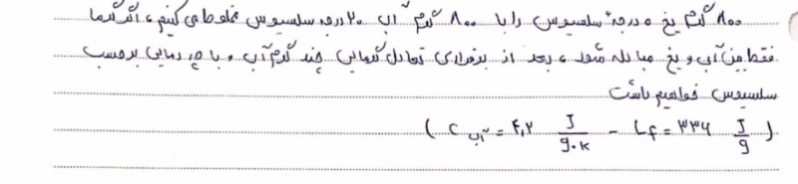 ۸۰۰ گرم یخ ۰ درجه سلسیوس را با ۸۰۰ گرم آب ۲۰ درجه سلسیوس مخلوط می کنیم، اگر گرما
فقط بین آب و یخ مبادله شود، بعد از برقراری تعادل گرمایی چند گرم آب و با چه دمایی برحسب
سلسیوس خواهیم داشت
( C آب = ۴,۲ J/g.K - Lf = ۳۳۶ J/g )